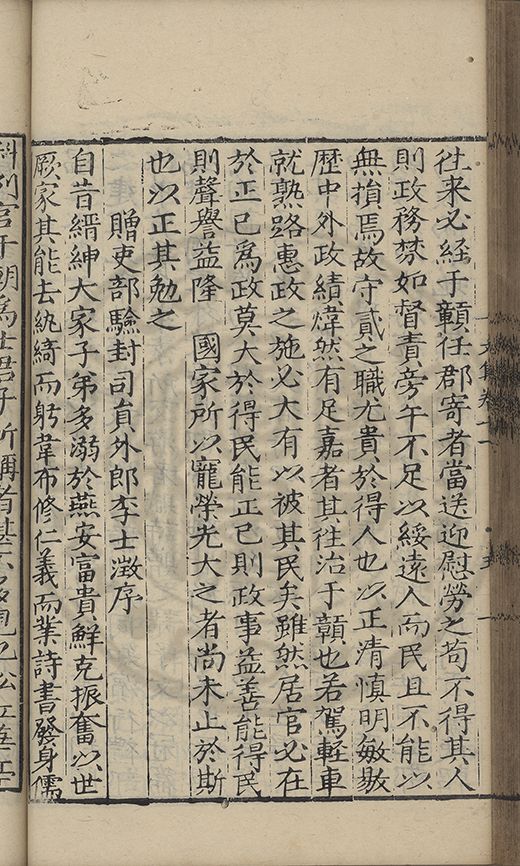 往来必經于贑任郡寄者當送迎慰勞之苟不得其人
則政務棼如督責旁午不足以綏遠人而民且不能以
無損焉故守貳之職尤貴於得人也以正清慎明敏敭
歴中外政績煒然有足嘉者其徃治于贑也若駕輕車
就熟路惠政之施必大有以被其民矣雖然居官必在
於正己爲政莫大於得民能正己則政事益善能得民
則聲譽益隆 國家所以寵榮光大之者尚未止於斯
也以正其勉之
贈吏部驗封司貟外郎李士澂序
自昔縉紳大家子弟多溺於燕安富貴鮮克振奮以世
厥家其能去紈綺而躬韋布修仁義而業詩書發身儒